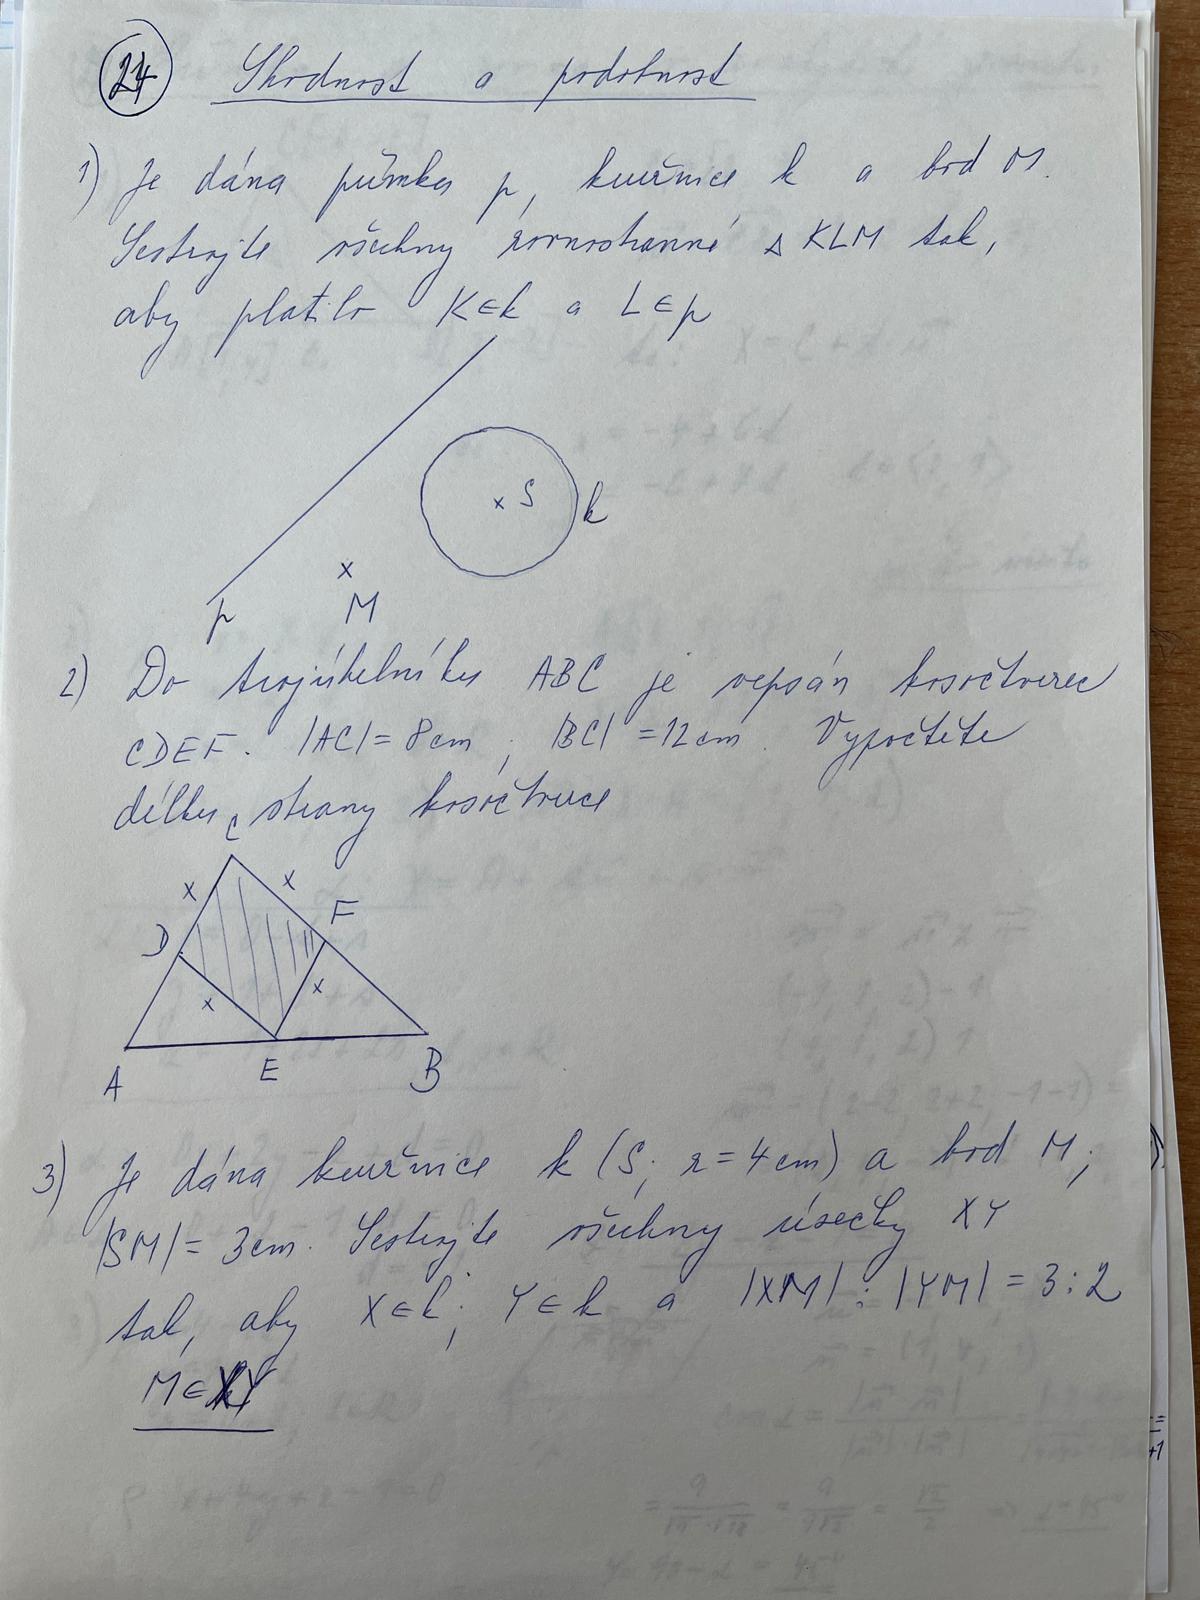 24 Shodnost a podobnost
1) Je dána přímka p, kružnice k a bod M.
Sestrojte všechny rovnostranné △ KLM tak,
aby platilo K∈k a L∈p
x S
k
x
p M
2) Do trojúhelníku ABC je vepsán kosočtverec
CDEF. |AC| = 8cm ; |BC| = 12cm. Vypočtěte
délku strany kosočtverce
C
x x
F
D
x x
A E B
3) Je dána kružnice k (S; r = 4cm) a bod M;
|SM| = 3cm. Sestrojte všechny úsečky XY
tak, aby X∈k; Y∈k a |XM| : |YM| = 3:2
M∈XY